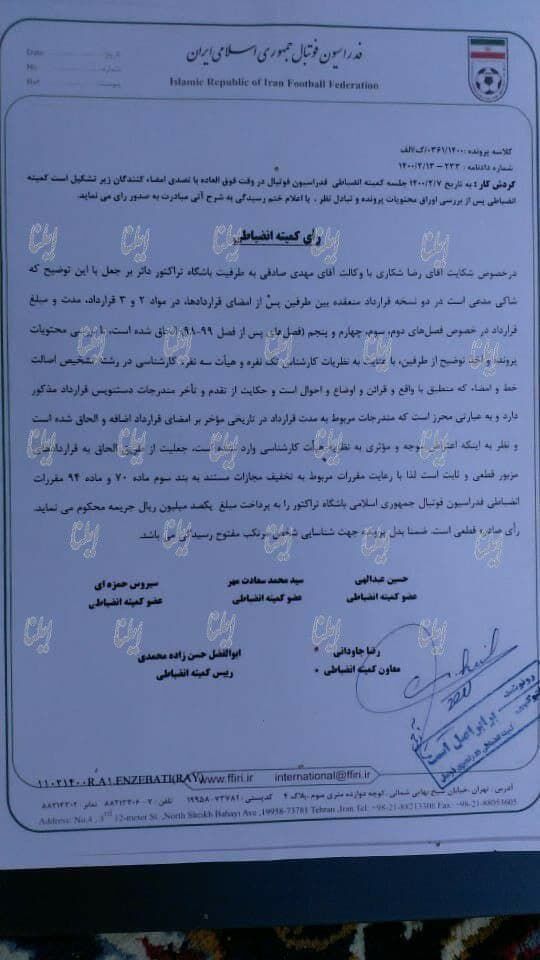 فدراسیون فوتبال جمهوری اسلامی ایران
Islamic Republic of Iran Football Federation
Date:
تاریخ:
No:
شماره:
Ref:
پیوست:
کلاسه پرونده :۰۳۶۱/۱۴۰۰/ک/الف
شماره دادنامه : ۲۳۳ – ۱۴۰۰/۲/۱۳
گردش کار : به تاریخ ۱۴۰۰/۲/۷ جلسه کمیته انضباطی فدراسیون فوتبال در وقت فوق العاده با تصدی امضاء کنندگان زیر تشکیل است کمیته
انضباطی پس از بررسی اوراق محتویات پرونده و تبادل نظر ، با اعلام ختم رسیدگی به شرح آتی مبادرت به صدور رای می نماید.
رای کمیته انضباطی
درخصوص شکایت آقای رضا شکاری با وکالت آقای مهدی صادقی به طرفیت باشگاه تراکتور دائر بر جعل با این توضیح که
شاکی مدعی است در دو نسخه قرارداد منعقده بین طرفین پس از امضای قراردادها، در مواد ۲ و ۳ قرارداد، مدت و مبلغ
قرارداد در خصوص فصل‌های دوم، سوم، چهارم و پنجم (فصل‌های پس از فصل ۹۹-۹۸) الحاق شده است، با بررسی محتویات
پرونده و اخذ توضیح از طرفین، با عنایت به نظریات کارشناس تک نفره و هیأت سه نفره کارشناسی در رشته تشخیص اصالت
خط و امضاء که منطبق با واقع و قرائن و اوضاع و احوال است و حکایت از تقدم و تأخر مندرجات دستنویس قرارداد مذکور
دارد و به عبارتی محرز است که مندرجات مربوط به مدت قرارداد در تاریخی مؤخر بر امضای قرارداد اضافه و الحاق شده است
و نظر به اینکه اعتراض موجه و مؤثری به نظریه هیأت کارشناسی وارد نشده است، جعلیت از طریق الحاق به قراردادهای
مزبور قطعی و ثابت است لذا با رعایت مقررات مربوط به تخفیف مجازات مستند به بند سوم ماده ۷۰ و ماده ۹۴ مقررات
انضباطی فدراسیون فوتبال جمهوری اسلامی باشگاه تراکتور را به پرداخت مبلغ یکصد میلیون ریال جریمه محکوم می نماید.
رأی صادره قطعی است. ضمنا بدل پرونده جهت شناسایی شخص مرتکب مفتوح رسیدگی می باشد.
حسین عبدالهی
سید محمد سعادت مهر
سیروس حمزه ای
عضو کمیته انضباطی
عضو کمیته انضباطی
عضو کمیته انضباطی
رضا جاودانی
ابوالفضل حسن زاده محمدی
معاون کمیته انضباطی
رییس کمیته انضباطی
رونوشت
برابر اصل است
11021400R.A1.ENZEBATI(RAY)
www.ffiri.ir
international@ffiri.ir
آدرس : تهران ,خیابان شیخ بهایی شمالی , کوچه دوازده متری سوم , پلاک ۴ کدپستی : ۷۳۷۸۱-۱۹۹۵۸ تلفن : ۷-۸۸۲۱۳۳۰۶ نمابر : ۸۸۲۱۳۳۰۲
Address: No.4 , 3rd 12-meter St. ,North Sheikh Bahayi Ave ,19958-73781 Tehran ,Iran Tel: +98-21-88213306 Fax: +98-21-88053605